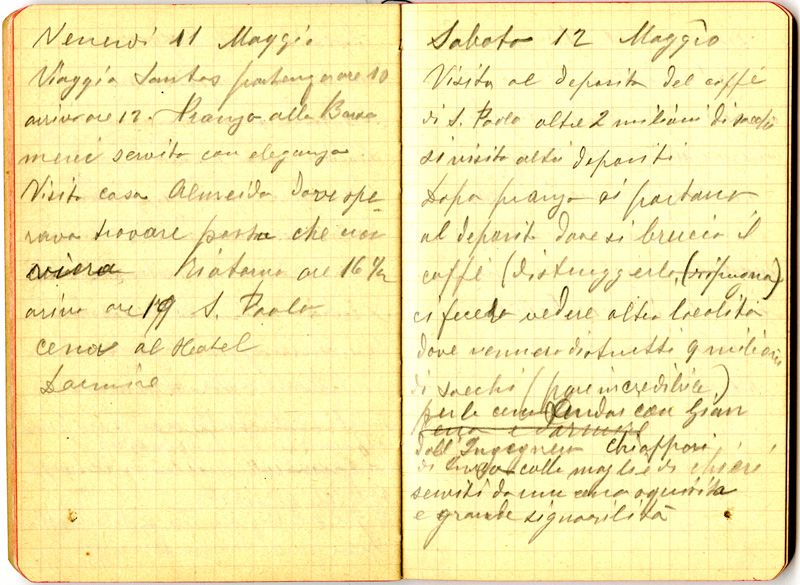 Venerdi 11 Maggio
Viaggio Santos partenza ore 10
arrivo ore 12. Pranzo alla Borsa
merci servito con eleganza
Visita casa Almeida dove spe-
ravo trovare posta che non
Ritorno ore 16 1/2
arrivo ore 19 S. Paolo
cena al Hotel
Dormire
Sabato 12 Maggio
Visita al deposito del caffé
di S. Paolo oltre 2 milioni di sacchi
si visita altri depositi
Dopo pranzo si partano
al deposito dove si brucia il
caffé (distruggerlo, (ripugna)
ci fecero vedere altra località
dove vennero distrutti 9 milioni
di sacchi (pare incredibile)
per la cena andas con Gian
cena e dormire
dall'Ingegnere Chiappori
colla moglie di
serviti da una cena squisita
e grande signorilità